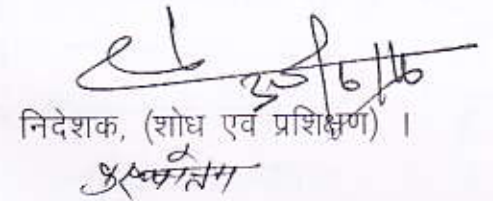 30/6/16
निदेशक, (शोध एवं प्रशिक्षण) ।